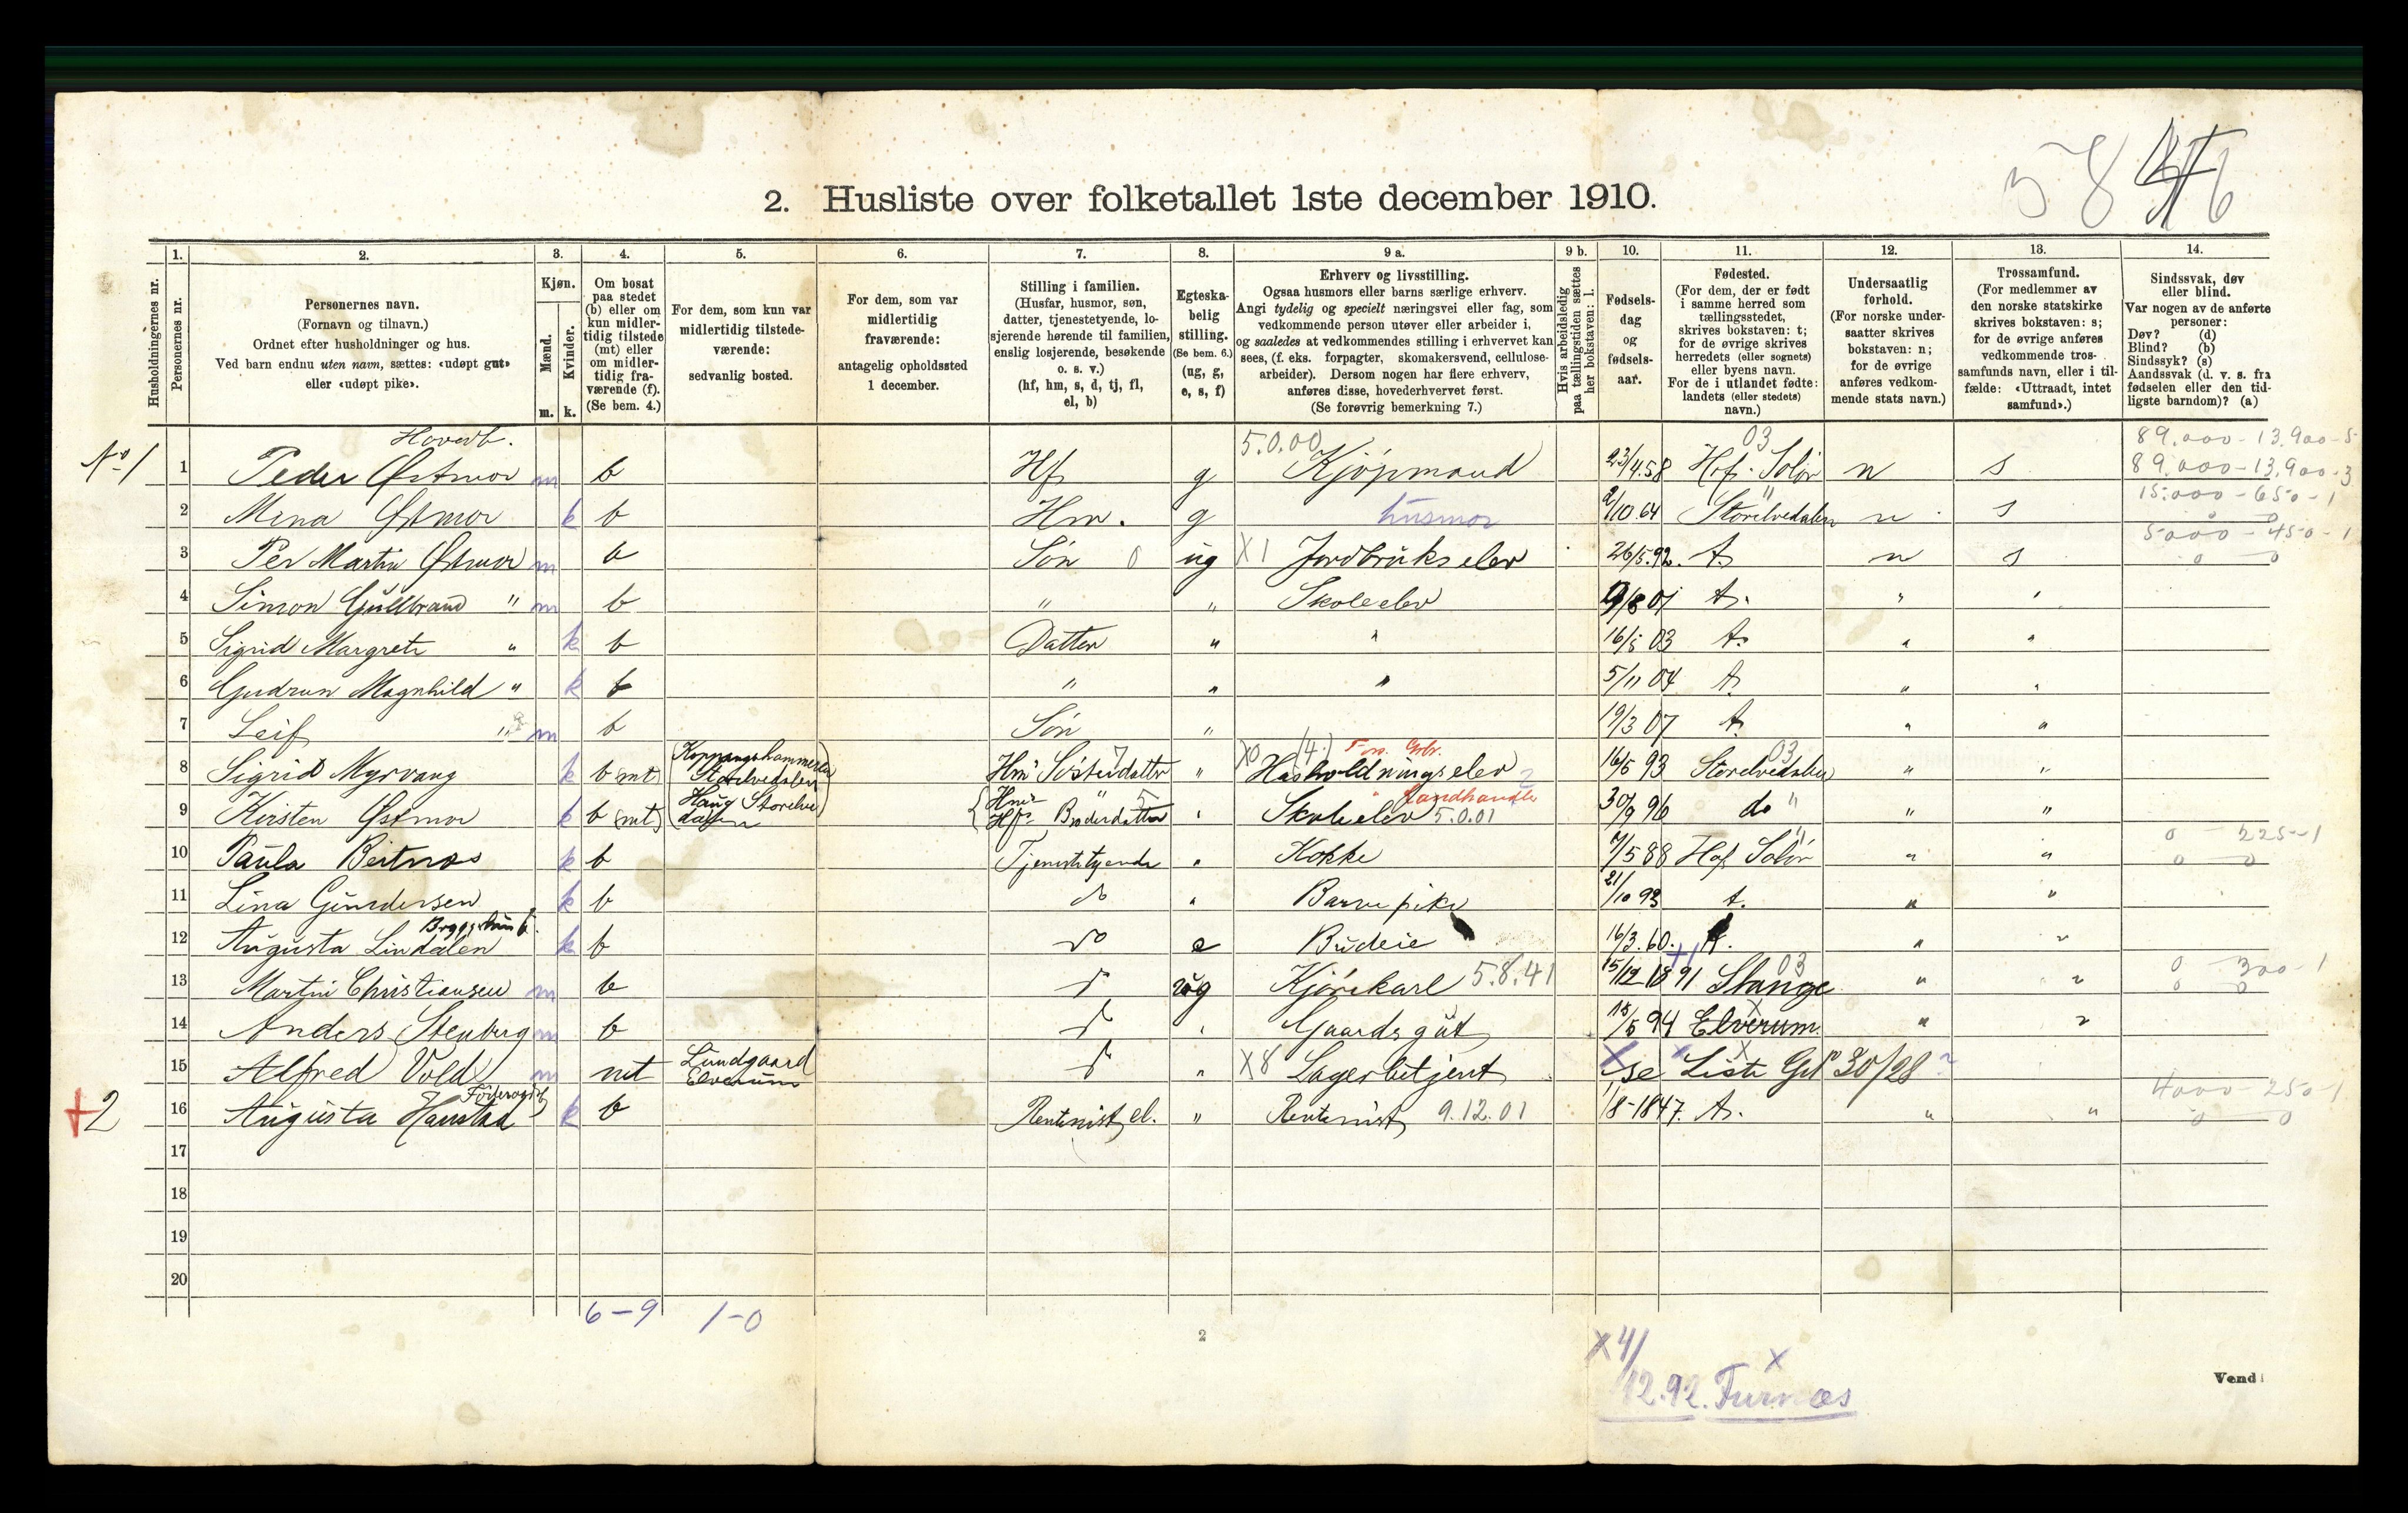 58 46
2. Husliste over folketallet 1ste december 1910.
1. 2. 3. 4. 5. 6. 7. 8. 9 a. 9 b. 10. 11. 12. 13. 14.
Husholdningernes nr.
Personernes nr.
Personernes navn.
(Fornavn og tilnavn.)
Ordnet efter husholdninger og hus.
Ved barn endnu uten navn, sættes: «udøpt gut»
eller «udøpt pike».
Kjøn.
Mænd.
Kvinder.
m. k.
Om bosat
paa stedet
(b) eller om
kun midler-
tidig tilstede
(mt) eller
om midler-
tidig fra-
værende (f).
(Se bem. 4.)
For dem, som kun var
midlertidig tilstede-
værende:
sedvanlig bosted.
For dem, som var
midlertidig
fraværende:
antagelig opholdssted
1 december.
Stilling i familien.
(Husfar, husmor, søn,
datter, tjenestetyende, lo-
sjerende hørende til familien,
enslig losjerende, besøkende
o. s. v.)
(hf, hm, s, d, tj, fl,
el, b)
Egteska-
belig
stilling.
(Se bem. 6.)
(ug, g,
e, s, f)
Erhverv og livsstilling.
Ogsaa husmors eller barns særlige erhverv.
Angi tydelig og specielt næringsvei eller fag, som
vedkommende person utøver eller arbeider i,
og saaledes at vedkommendes stilling i erhvervet kan
sees, (f. eks. forpagter, skomakersvend, cellulose-
arbeider). Dersom nogen har flere erhverv,
anføres disse, hovederhvervet først.
(Se forøvrig bemerkning 7.)
Hvis arbeidsledig
paa tællingstiden sættes
her bokstaven: l.
Fødsels-
dag
og
fødsels-
aar.
Fødested.
(For dem, der er født
i samme herred som
tællingsstedet,
skrives bokstaven: t;
for de øvrige skrives
herredets (eller sognets)
eller byens navn.
For de i utlandet fødte:
landets (eller stedets)
navn.)
Undersaatlig
forhold.
(For norske under-
saatter skrives
bokstaven: n;
for de øvrige
anføres vedkom-
mende stats navn.)
Trossamfund.
(For medlemmer av
den norske statskirke
skrives bokstaven: s;
for de øvrige anføres
vedkommende tros-
samfunds navn, eller i til-
fælde: «Uttraadt, intet
samfund».)
Sindssvak, døv
eller blind.
Var nogen av de anførte
personer:
Døv? (d)
Blind? (b)
Sindssyk? (s)
Aandssvak (d. v. s. fra
fødselen eller den tid-
ligste barndom)? (a)
Hovedb. 5.0.00 03 89.000-13.900-5
No 1 1 Peder Østmor m b Hf g Kjøpmand 23/4.58 Hof. Solør n s 89.000-13.900-3
15.000-650-1
2 Mina Østmor k b Hm. g husmor 2/10.64 Storelvedalen n s 0 0
5000-450-1
3 Per Martin Østmor m b Søn 0 ug X1 Jordbrukselev 26/5.92. t. n s 0 0
4 Simon Gullbrand " m b " " Skoleelev 9/8 01 t. " "
5 Sigrid Margrete " k b Datter " " 16/5 03 t. " "
6 Gudrun Magnhild " k b " " " 5/11 04 t. " "
7 Leif " m b Søn " 19/3 07 t. " "
8 Sigrid Myrvang k b (mt) (Koppangkammeren Storelvedalen) Hms Søsterdatter 7 " X0 (4.) Husholdningselev 16/5 93 03 Storelvedalen " "
9 Kirsten Østmor k b (mt) (Haug Storelvedalen) Hms " 5 Hfs Broderdatter " Landhandler Skoleelev 5.0.01 30/9 96 do " " "
10 Paula Beitnes k b Tjenestetyende " Kokke 7/5 88 Hof Solør " " 0 225-1 0 0
11 Lina Gundersen k b do " Barnepike 21/10 93 t. " "
Bryggerhus b.
12 Augusta Lindalen k b do e Budeie 16/3.60. t. " "
13 Martin Christiansen m b d ug Kjørekarl 5.8.41 15/12 1891 03 Stange " " 0 300-1 0 0
14 Anders Stenberg m b d " Gaardsgut 15/5 94 Elverum " "
15 Alfred Vold m mt Lundgaard Elverum d " X8 Lagerbetjent se Liste 30/28
Föderaadsb
+2 16 Augusta Hanstad k b Rentenist, el. " Rentenist 9.12.01 1/8-1847. t. " " 4000-250-1 0 0
17
18
19
20
6-9 1-0
2
X 4/12.92. Furnæs
Vend!